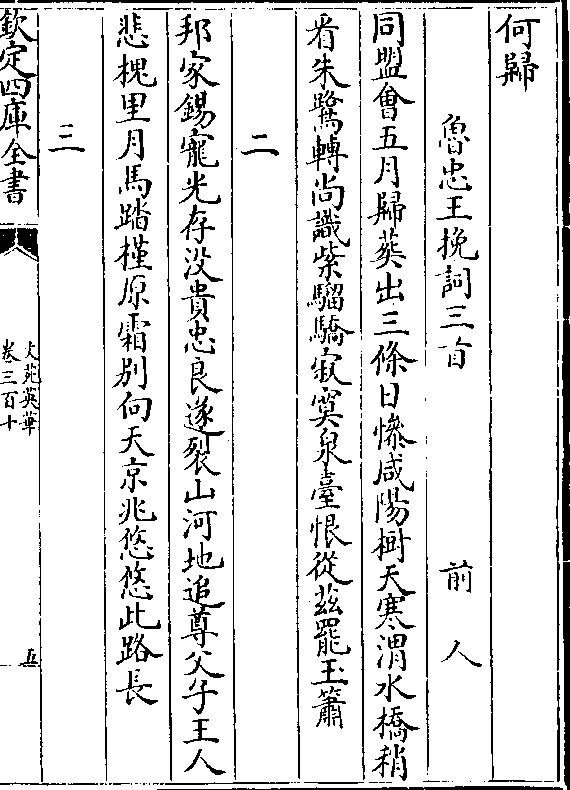 何歸
魯忠王挽詞三首　前人
同盟會五月歸葬出三條日慘咸陽樹天寒渭水橋稍
看朱鷺轉尚識紫騮驕寂寞泉臺恨從茲罷玉簫
二
邦家錫寵光存没貴忠良遂裂山河地追尊父子王人
悲槐里月馬踏槿原霜别向天京兆悠悠此路長
三
欽定四庫全書
文苑英華
卷三百十
五